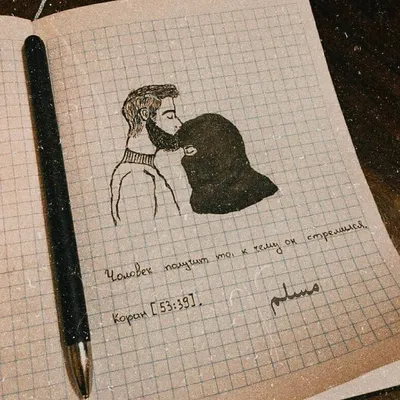 Человек получит то, к чему он стремился.
Коран [53:39].